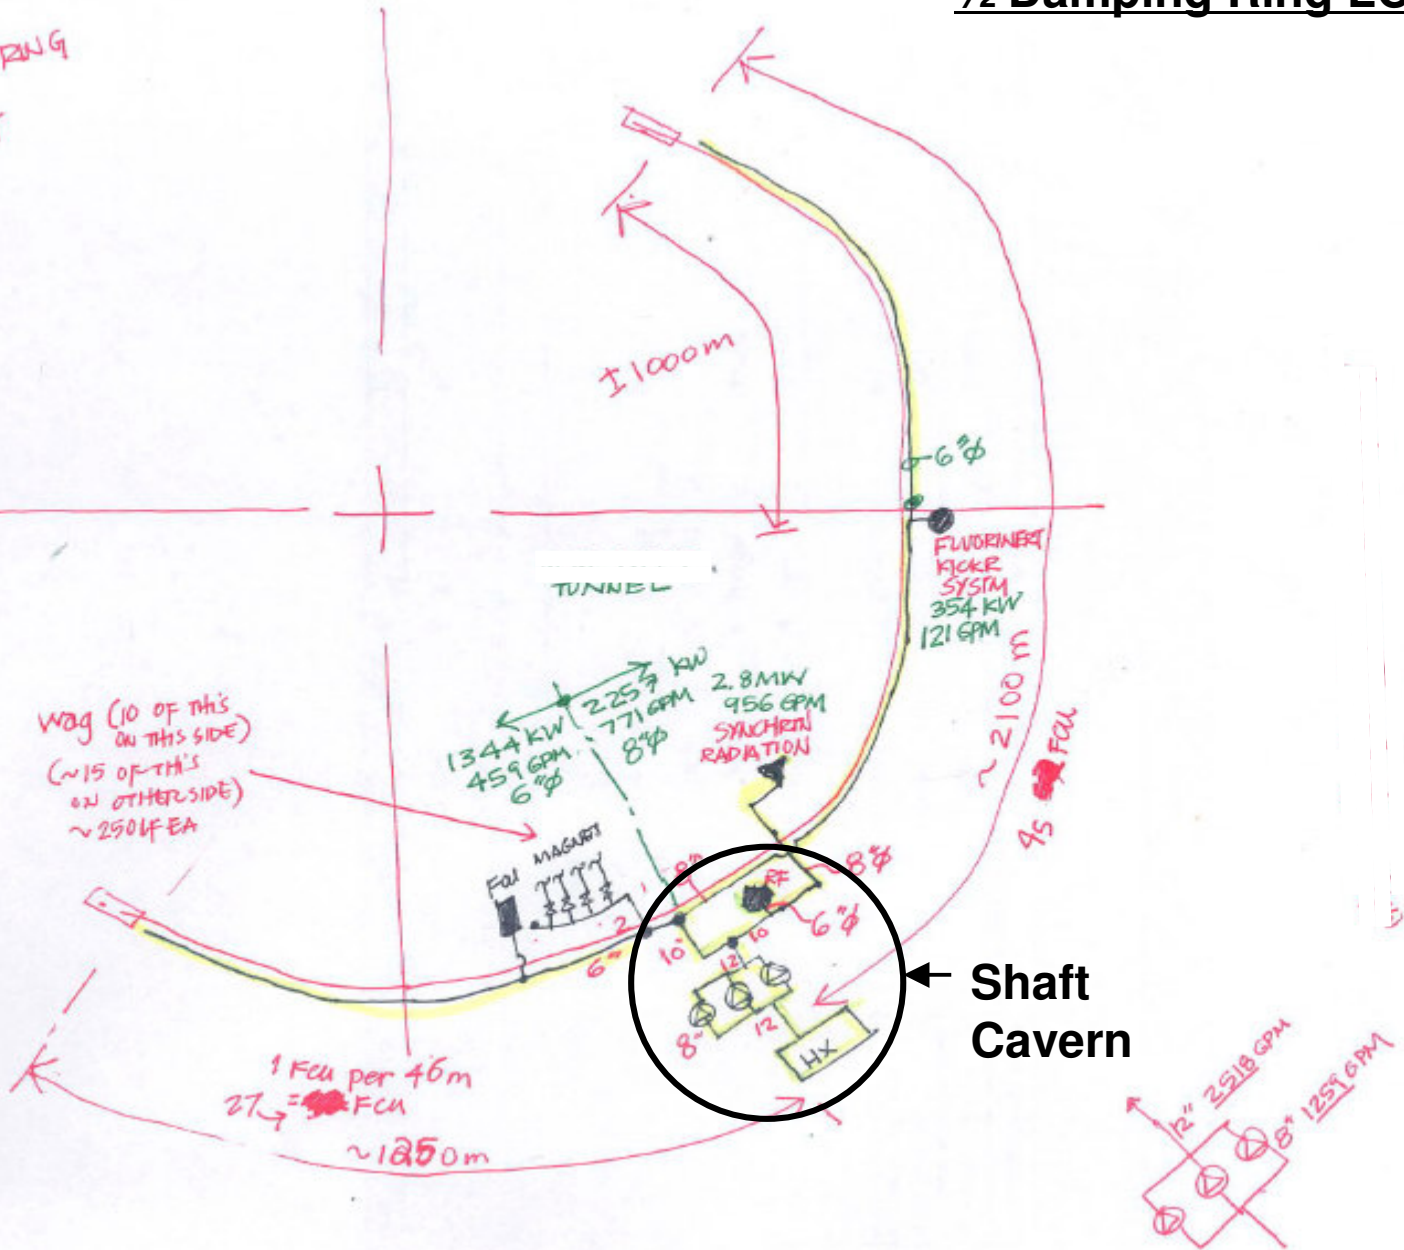 ½ Damping Ring
RING
±1000m
6"Ø
FLUORINERT
KICKR
SYSTM
354 KW
121 GPM
TUNNEL
~2100 m
45 FCU
KW
2257
771 GPM
8"Ø
1344 KW
459 GPM
6"Ø
2.8MW
956 GPM
SYNCHRTN
RADIATION
wag (10 OF THIS
ON THIS SIDE)
(~15 OF THIS
ON OTHER SIDE)
~250 LF EA
FCU
MAGNETS
8"
8"Ø
RF
6"Ø
2
6"
10"
10
12
8"
12
HX
Shaft
Cavern
1 FCU per 46m
27 = FCU
~1250m
12" 2518 GPM
8" 1259 GPM